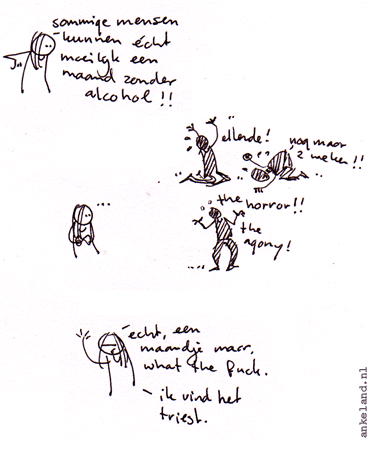 sommige mensen
kunnen écht
moeilijk een
maand zonder
alcohol!!
ellende!
nog maar
2 weken!!
...
the horror!!
the
agony!
écht, een
maandje maar,
what the fuck.
- ik vind het
triest.
ankeland.nl